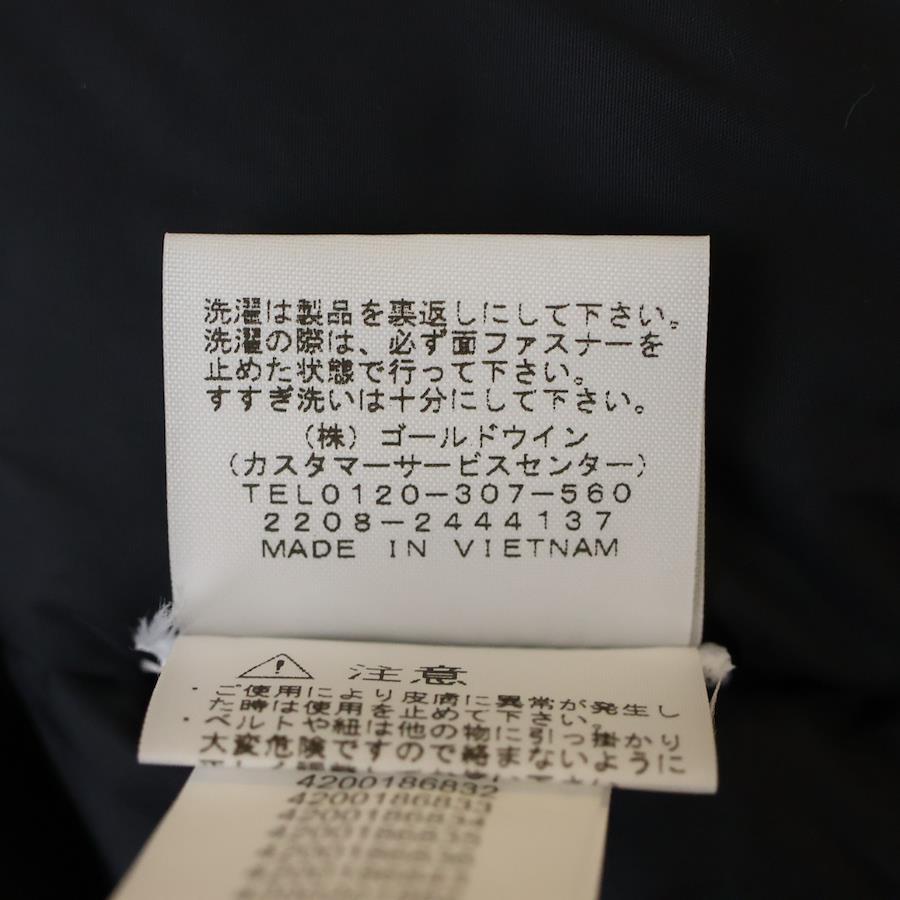 洗濯は製品を裏返しにして下さい。
洗濯の際は、必ず面ファスナーを
止めた状態で行って下さい。
すすぎ洗いは十分にして下さい。
（株）ゴールドウイン
（カスタマーサービスセンター）
TEL0120-307-560
2208-2444137
MADE IN VIETNAM
注意
・ご使用により皮膚に異常が発生し
た時は使用を止めて下さい。
・ベルトや紐は他の物に引っ掛かり
大変危険ですので絡まないように
4200186832
4200186833
4200186834
4200186835